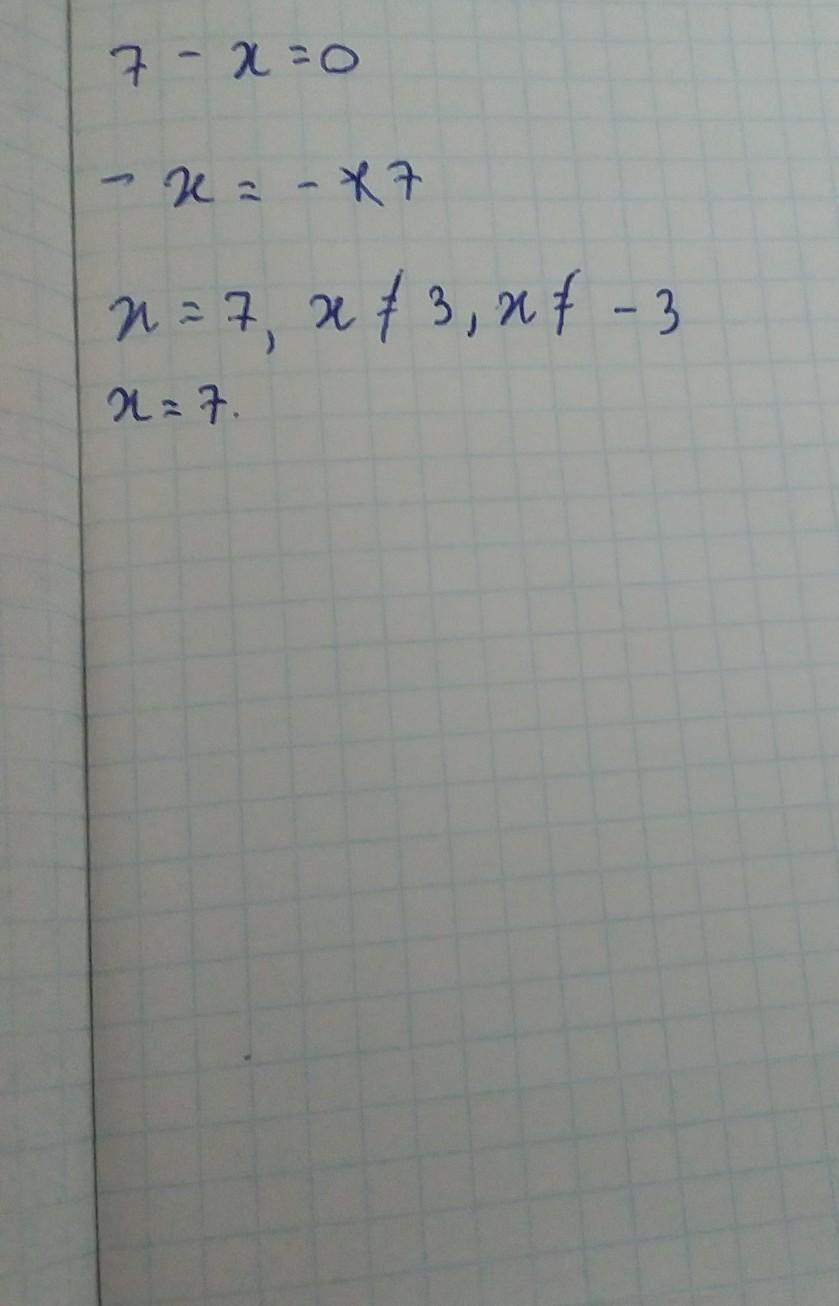 7 - x = 0
- x = - 7
x = 7, x ≠ 3, x ≠ - 3
x = 7.